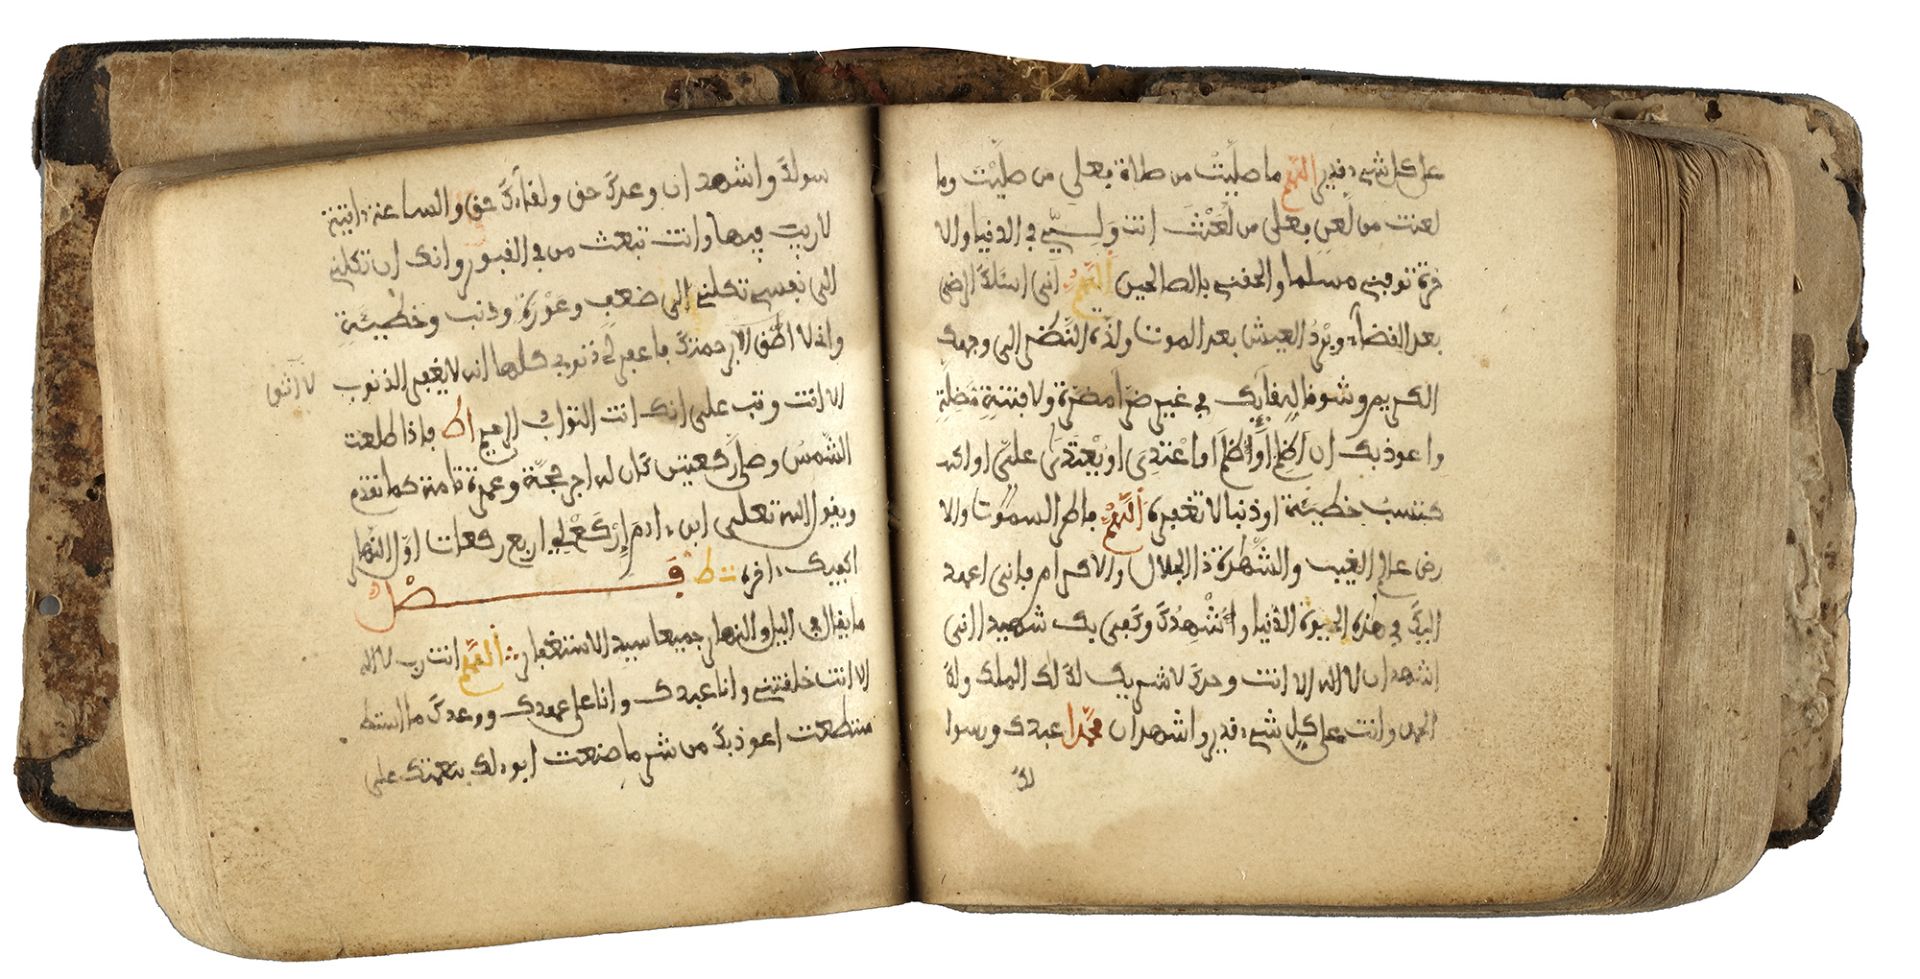 على كل شيء قدير اللهم ما صليت من صلاة فعلى من صليت وما
لعنت من لعن فعلى من لعنت انت وليي في الدنيا والا
خرة توفني مسلما والحقني بالصالحين اللهم اني اسئلك الرضى
بعد القضاء وبرد العيش بعد الموت ولذة النظر الى وجهك
الكريم وشوقا الى لقايك في غير ضرا مضرة ولا فتنة مضلة
واعوذ بك ان اظلم او اظلم او اعتدى او يعتدى علي او اكـ
ـتسب خطيئة او ذنبا لا تغفره اللهم فاطر السموات والا
رض عالم الغيب والشهدة ذا الجلال والاكرام فإنى اعهد
اليك في هذه الحيوة الدنيا واشهدك وكفى بك شهيدا انى
اشهد ان لا اله الا انت وحدك لا شريك لك لك الملك ولك
الحمد وانت على كل شيء قدير واشهد ان محمدا عبدك ورسو
لك
سولك واشهد ان وعدك حق ولقاءك حق والساعة ءاتية
لا ريب فيها وانت تبعث من في القبور وانك ان تكلني
الى نفسي تكلني الى ضعف وعورة وذنب وخطيئة
وانى لا اثق الا برحمتك فاغفر لي ذنوبي كلها انه لا يغفر الذنوب
لا اثق
الا انت وتب على انك انت التواب الرحيم اط فاذا طلعت
الشمس وصلى ركعتين كان له اجر حجة وعمرة تامة كما تقدم
ويقول الله تعلى ابن ءادم اركع لي اربع ركعات اول النهار
اكفيك ءاخره ت ط فصل
ما يقال في اليل والنهار جميعا سيد الاستغفار اللهم انت رب لا اله
الا انت خلقتني وانا عبدك وانا على عهدك ووعدك ما استط
ستطعت اعوذ بك من شر ما صنعت ابوء لك بنعمتك على